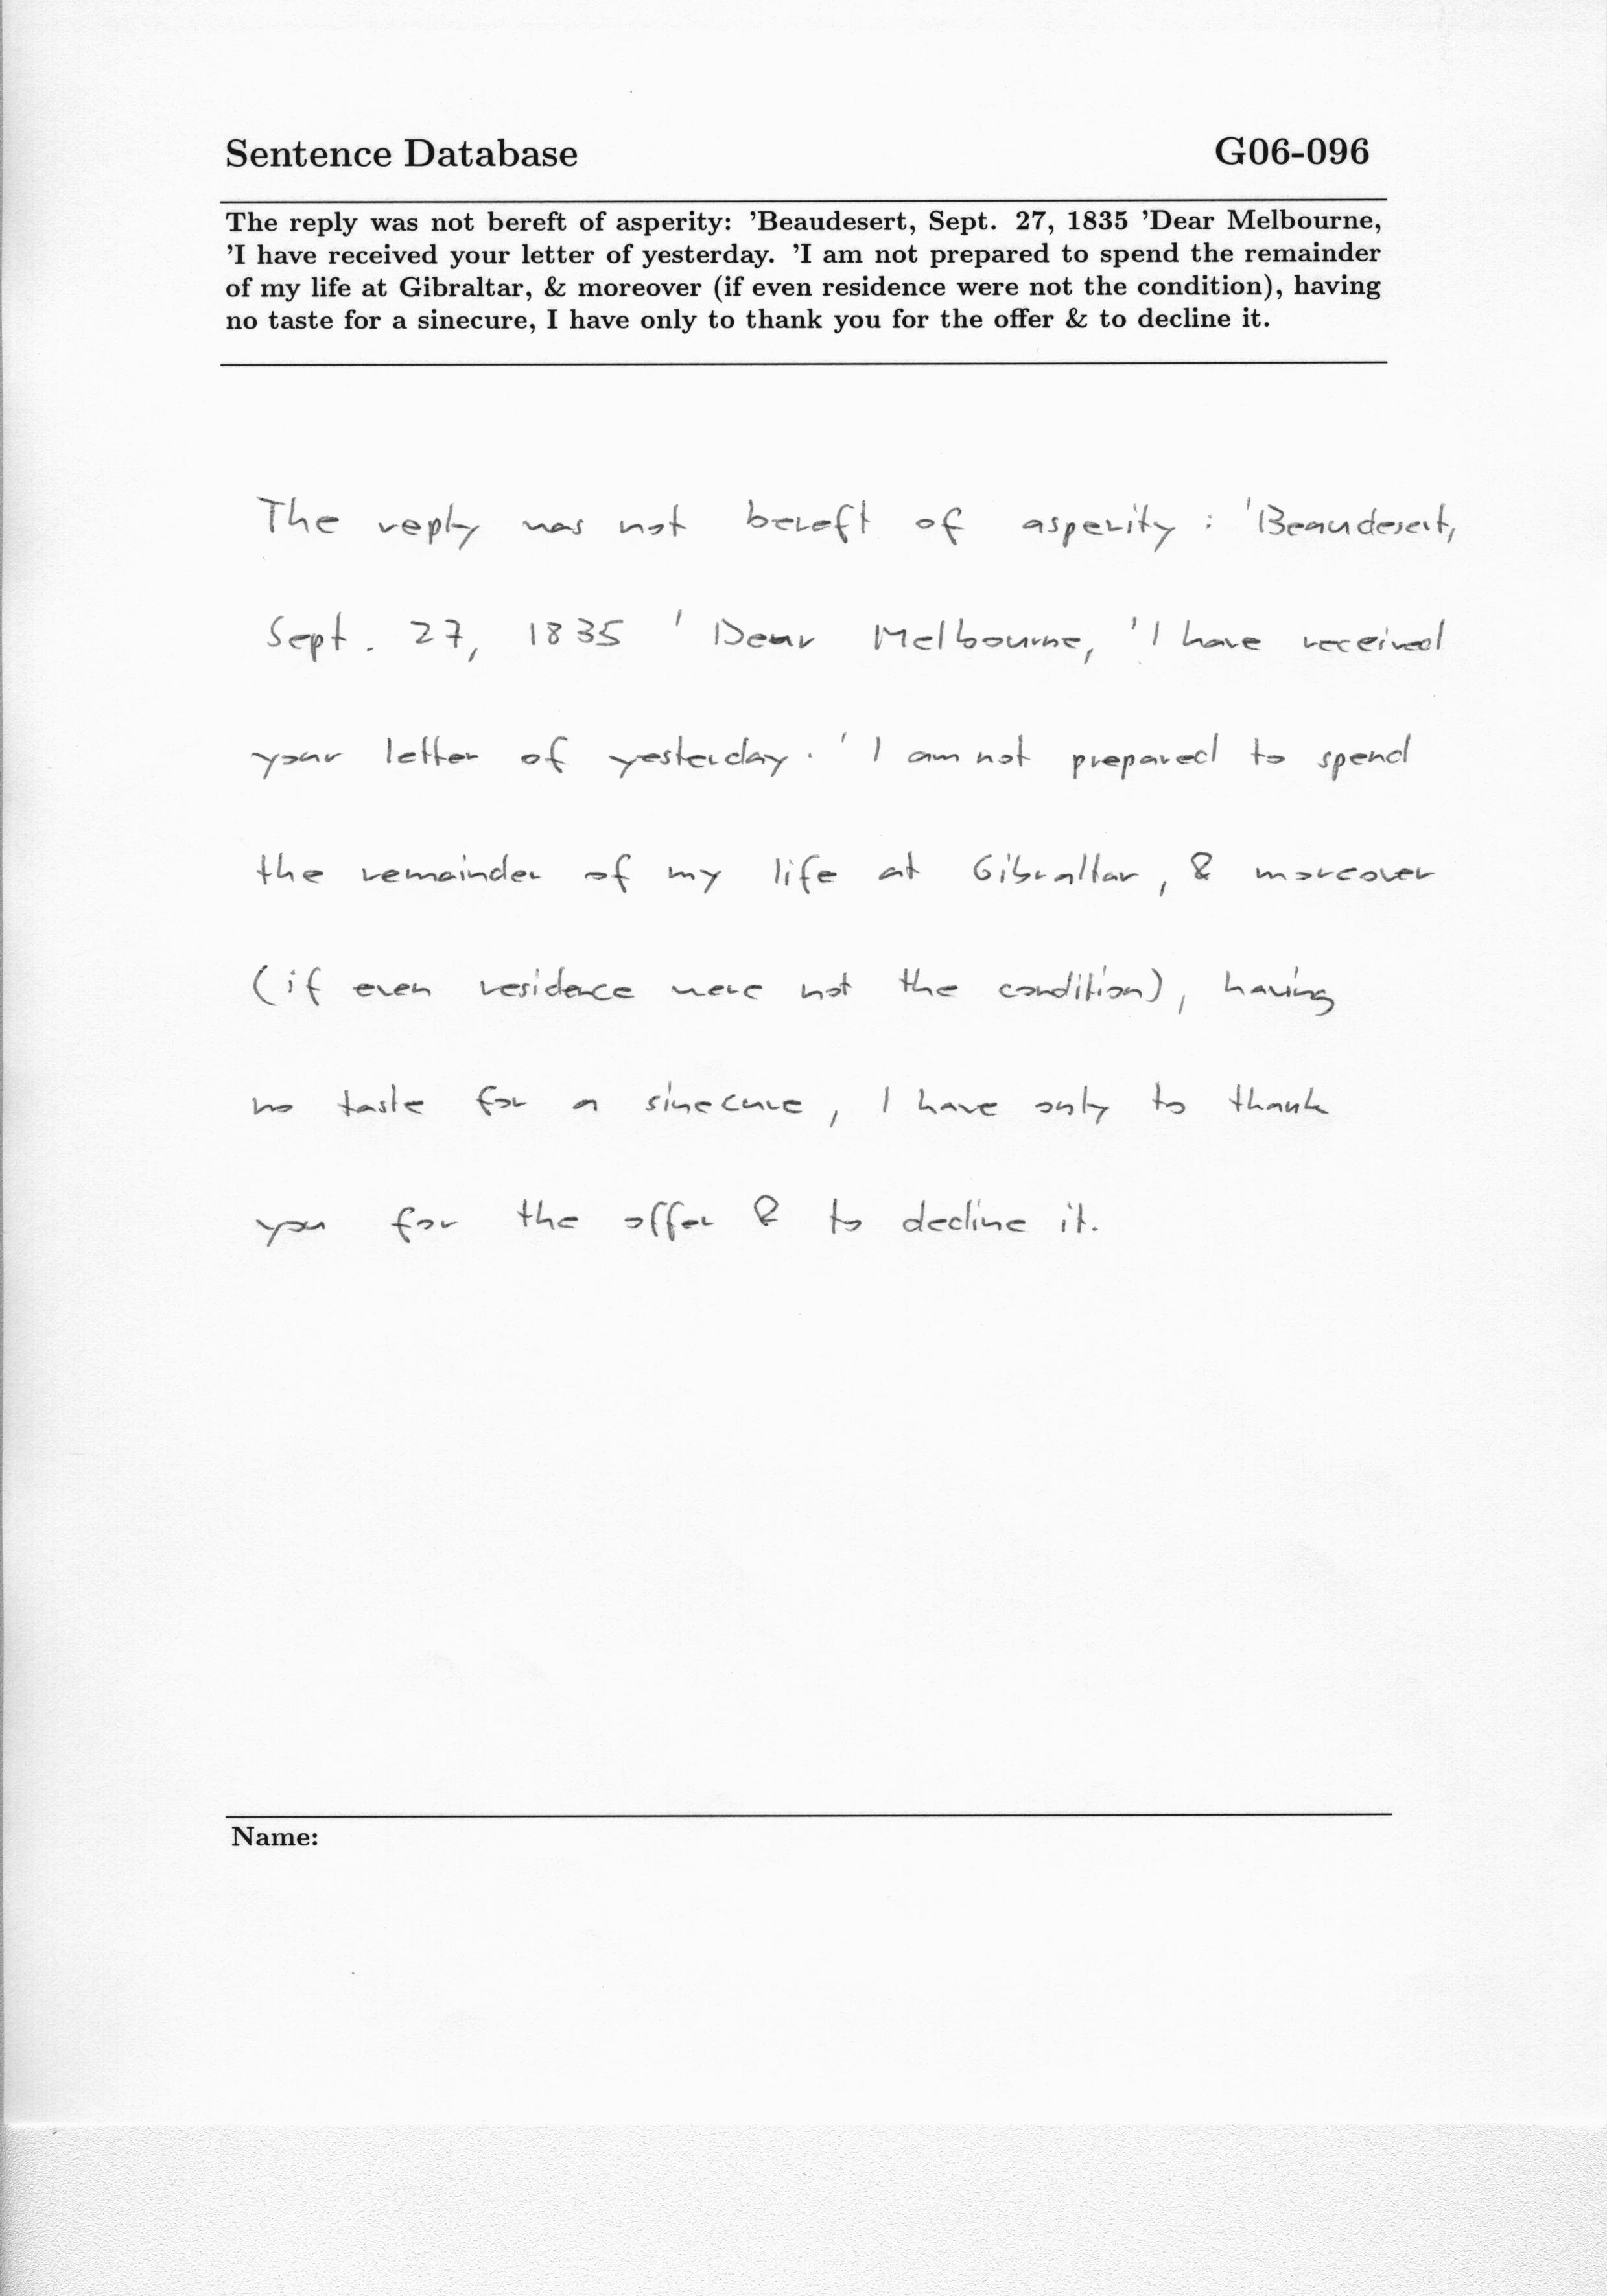 Sentence Database G06-096
The reply was not bereft of asperity: 'Beaudesert, Sept. 27, 1835 'Dear Melbourne,
'I have received your letter of yesterday. 'I am not prepared to spend the remainder
of my life at Gibraltar, & moreover (if even residence were not the condition), having
no taste for a sinecure, I have only to thank you for the offer & to decline it.
The reply was not bereft of asperity : 'Beaudesert,
Sept. 27, 1835 ' Dear Melbourne, 'I have received
your letter of yesterday. ' I am not prepared to spend
the remainder of my life at Gibraltar, & moreover
(if even residence were not the condition), having
no taste for a sinecure, I have only to thank
you for the offer & to decline it.
Name: